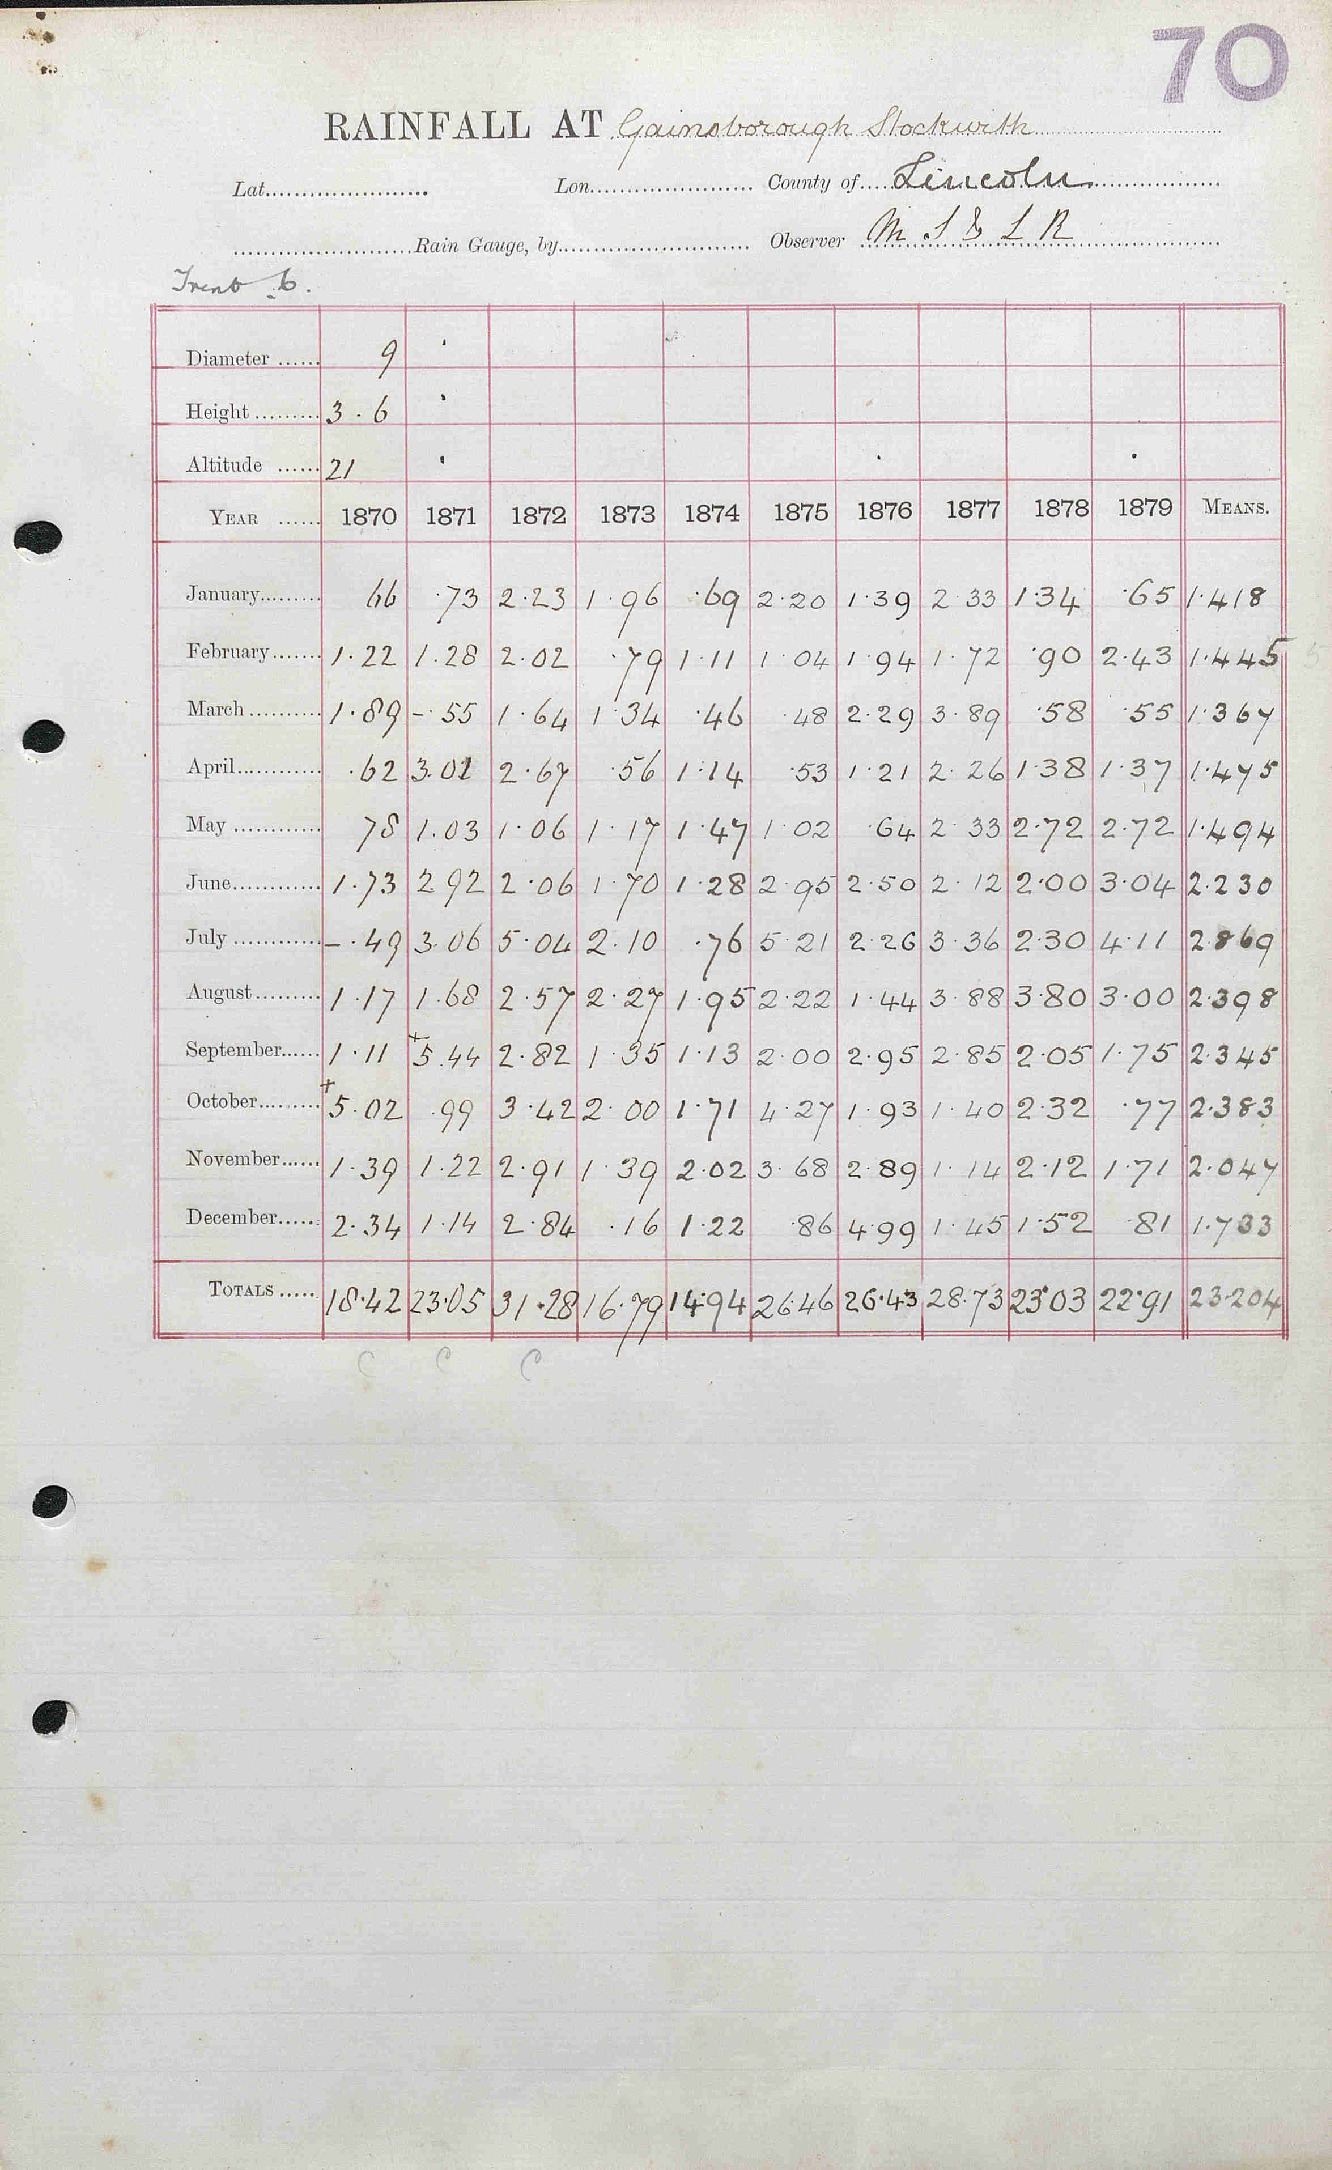 70
RAINFALL AT Gainsborough Stockwith
Lat. Lon. County of Lincoln
Rain Gauge, by Observer M S & L R
Trent 6.
Diameter 9
Height 3.6
Altitude 21
YEAR 1870 1871 1872 1873 1874 1875 1876 1877 1878 1879 MEANS.
January 66 .73 2.23 1.96 .69 2.20 1.39 2.33 1.34 .65 1.418
February 1.22 1.28 2.02 .79 1.11 1.04 1.94 1.72 .90 2.43 1.445 5
March 1.89 -.55 1.64 1.34 .46 .48 2.29 3.89 .58 .55 1.367
April .62 3.01 2.67 .56 1.14 .53 1.21 2.26 1.38 1.37 1.475
May 78 1.03 1.06 1.17 1.47 1.02 .64 2.33 2.72 2.72 1.494
June 1.73 2.92 2.06 1.70 1.28 2.95 2.50 2.12 2.00 3.04 2.230
July -.49 3.06 5.04 2.10 .76 5.21 2.26 3.36 2.30 4.11 2.869
August 1.17 1.68 2.57 2.27 1.95 2.22 1.44 3.88 3.80 3.00 2.398
September 1.11 +5.44 2.82 1.35 1.13 2.00 2.95 2.85 2.05 1.75 2.345
October +5.02 .99 3.42 2.00 1.71 4.27 1.93 1.40 2.32 .77 2.383
November 1.39 1.22 2.91 1.39 2.02 3.68 2.89 1.14 2.12 1.71 2.047
December 2.34 1.14 2.84 .16 1.22 .86 4.99 1.45 1.52 .81 1.733
TOTALS 18.42 23.05 31.28 16.79 14.94 26.46 26.43 28.73 23.03 22.91 23.204
C C C